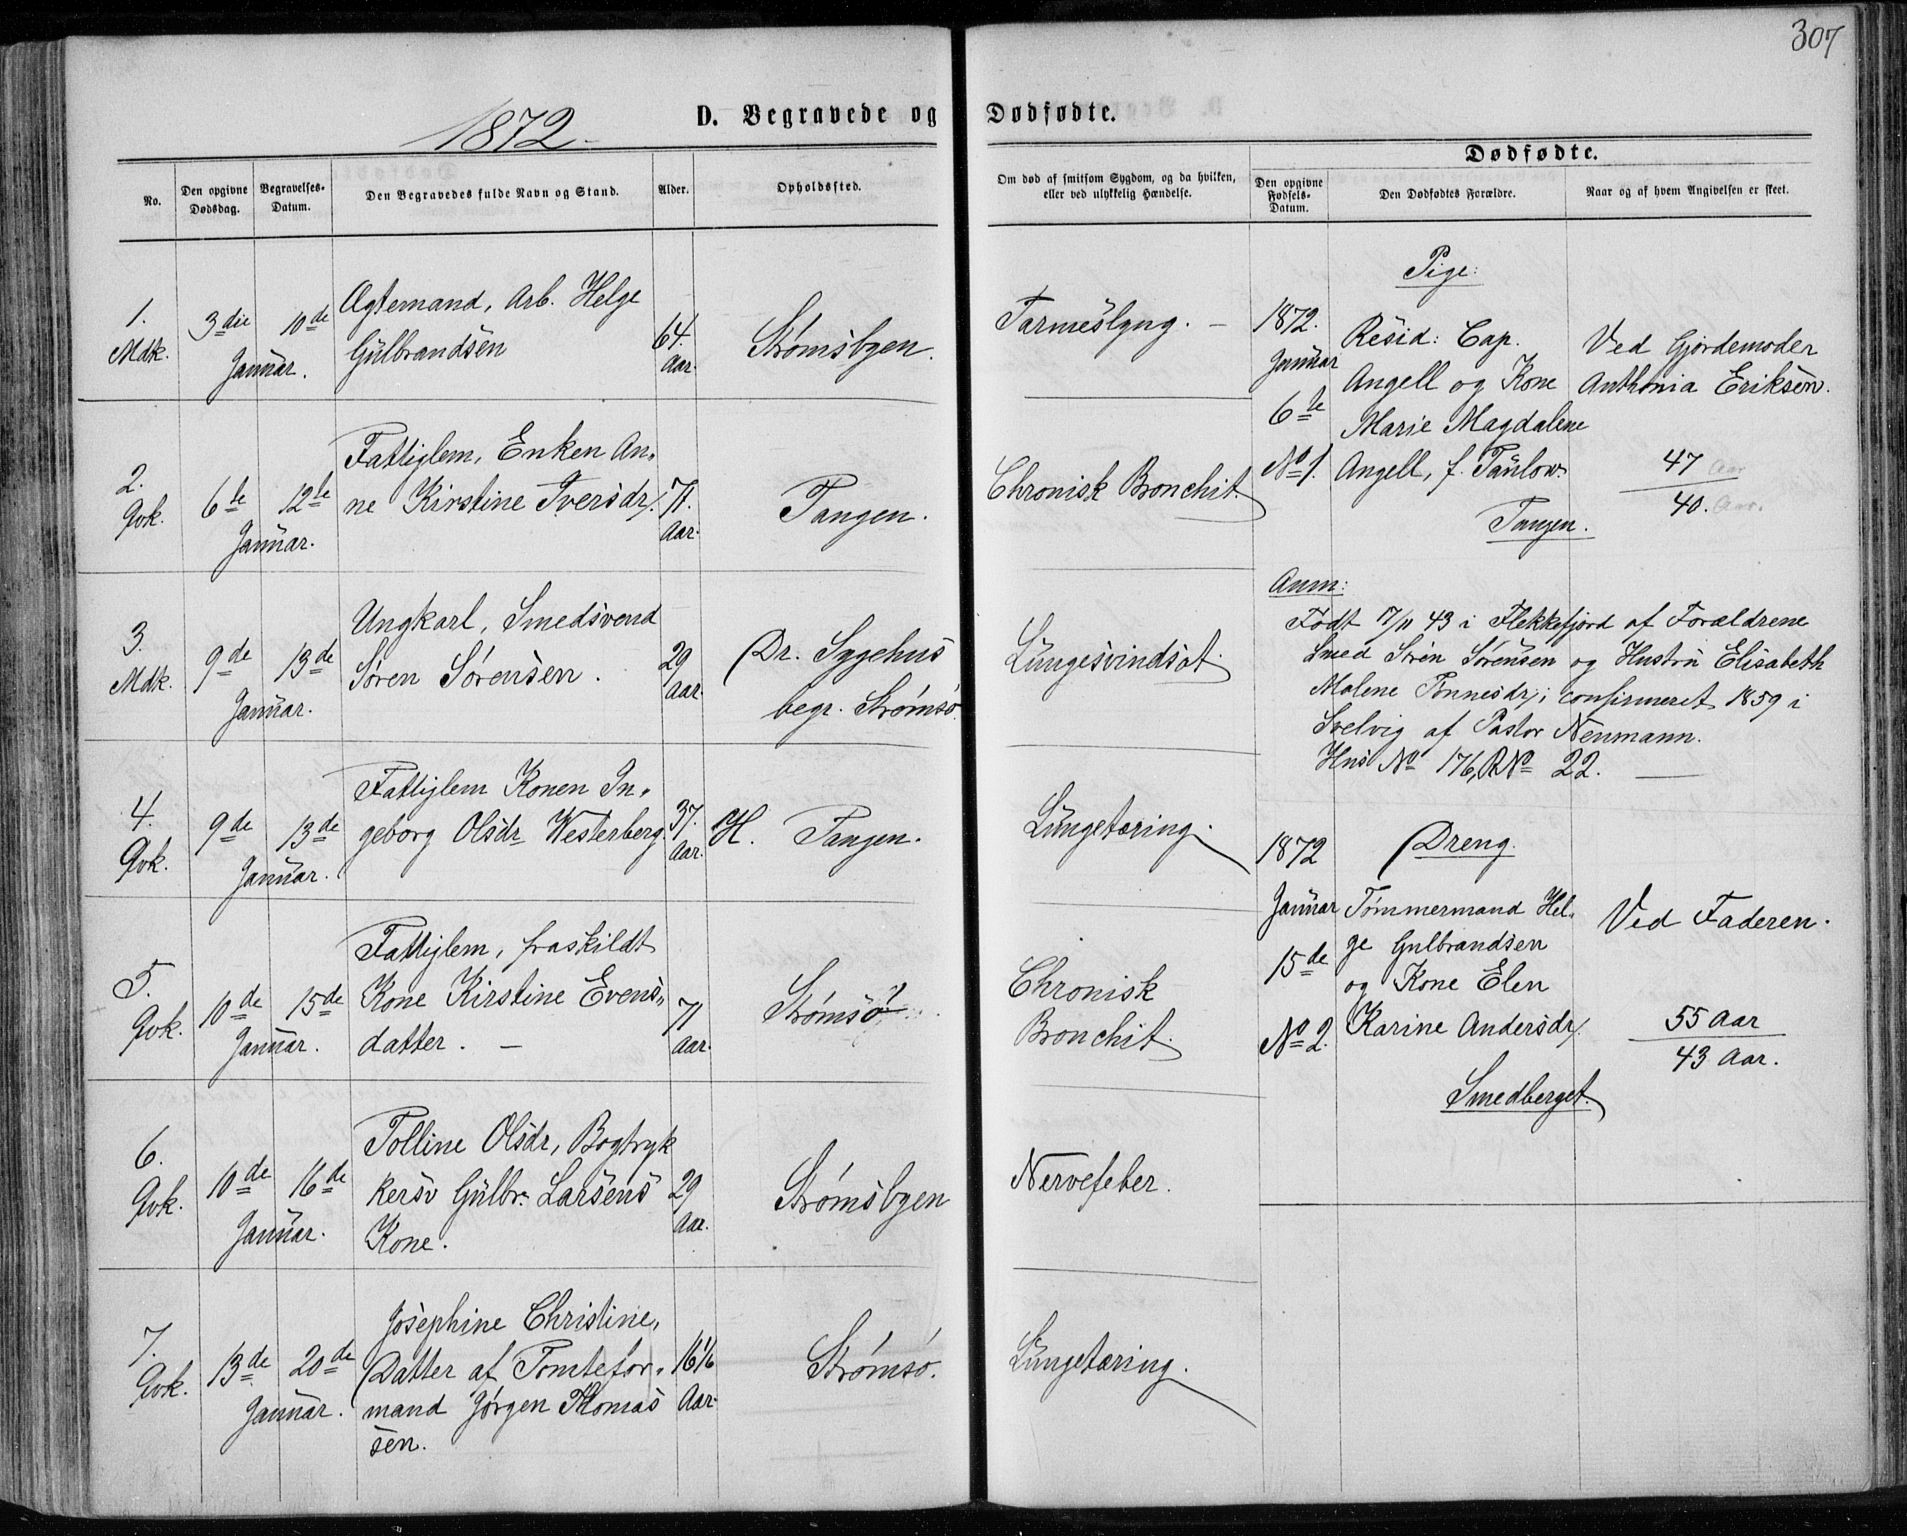 307
1872.
D. Begravede og Dødfødte.
No.
Den opgivne Dødsdag.
Begravelses-Datum.
Den Begravedes fulde Navn og Stand.
Alder.
Opholdssted.
Om død af smitsom Sygdom, og da hvilken,
eller ved ulykkelig Hændelse.
Dødfødte.
Den opgivne Fødsels-Datum.
Den Dødfødtes Forældre.
Naar og af hvem Angivelsen er skeet.
1.
Mdk.
3die 10de
Januar.
Ægtemand, Arb. Helge
Gulbrandsen
64.
Aar.
Strømsbyen.
Tarmeslyng. —
2.
Qvk.
6te 12te
Januar.
Fattiglem, Enken An-
ne Kirstine Iversdr.
71.
Aar.
Tangen.
Chronisk Bronchit.
3.
Mdk.
9de 13de
Januar.
Ungkarl, Smedsvend
Søren Sørensen.
29
Aar.
Dr. Sygehus
begr. Strømsø.
Lungesvindsot.
4.
Qvk.
9de 13de
Januar.
Fattiglem Konen In-
geborg Olsdr Westerberg.
37.
Aar.
H. Tangen.
Lungetæring.
5.
Qvk.
10de 15de
Januar.
Fattiglem, fraskildt
Kone Kirstine Evens-
datter. —
71
Aar.
Strømsø
Chronisk
Bronchit.
6.
Qvk.
10de 16de
Januar.
Tolline Olsdr, Bogtryk
kersv Gulbr. Larsens
Kone.
29
Aar.
Strømsbyen
Nervefeber.
7.
Qvk.
13de 20de
Januar.
Josephine Christine,
Datter af Tomtefor-
mand Jørgen Thomas
sen.
16 1/6
Aar.
Strømsø.
Lungetæring.
Pige:
1872.
Januar
6te
No 1.
Resid: Cap.
Angell og Kone
Marie Magdalene
Angell, f. Taulow.
Tangen.
Ved Gjordemoder
Anthonia Eriksen.
47 Aar
40. Aar.
Anm:
Født 7/11 43 i Flekkefjord af Forældrene
Smed Sören Sörensen og Hustru Elisabeth
Malene Tönnesdr; confirmeret 1859 i
Svelvig af Pastor Neumann.
Hus No 176, R No 22. —
1872
Januar
15de
No 2.
Dreng.
Tømmermand Hel-
ge Gulbrandsen
og Kone Elen
Karine Andersdr.
Smedberget.
Ved Faderen.
55 Aar
43 Aar.